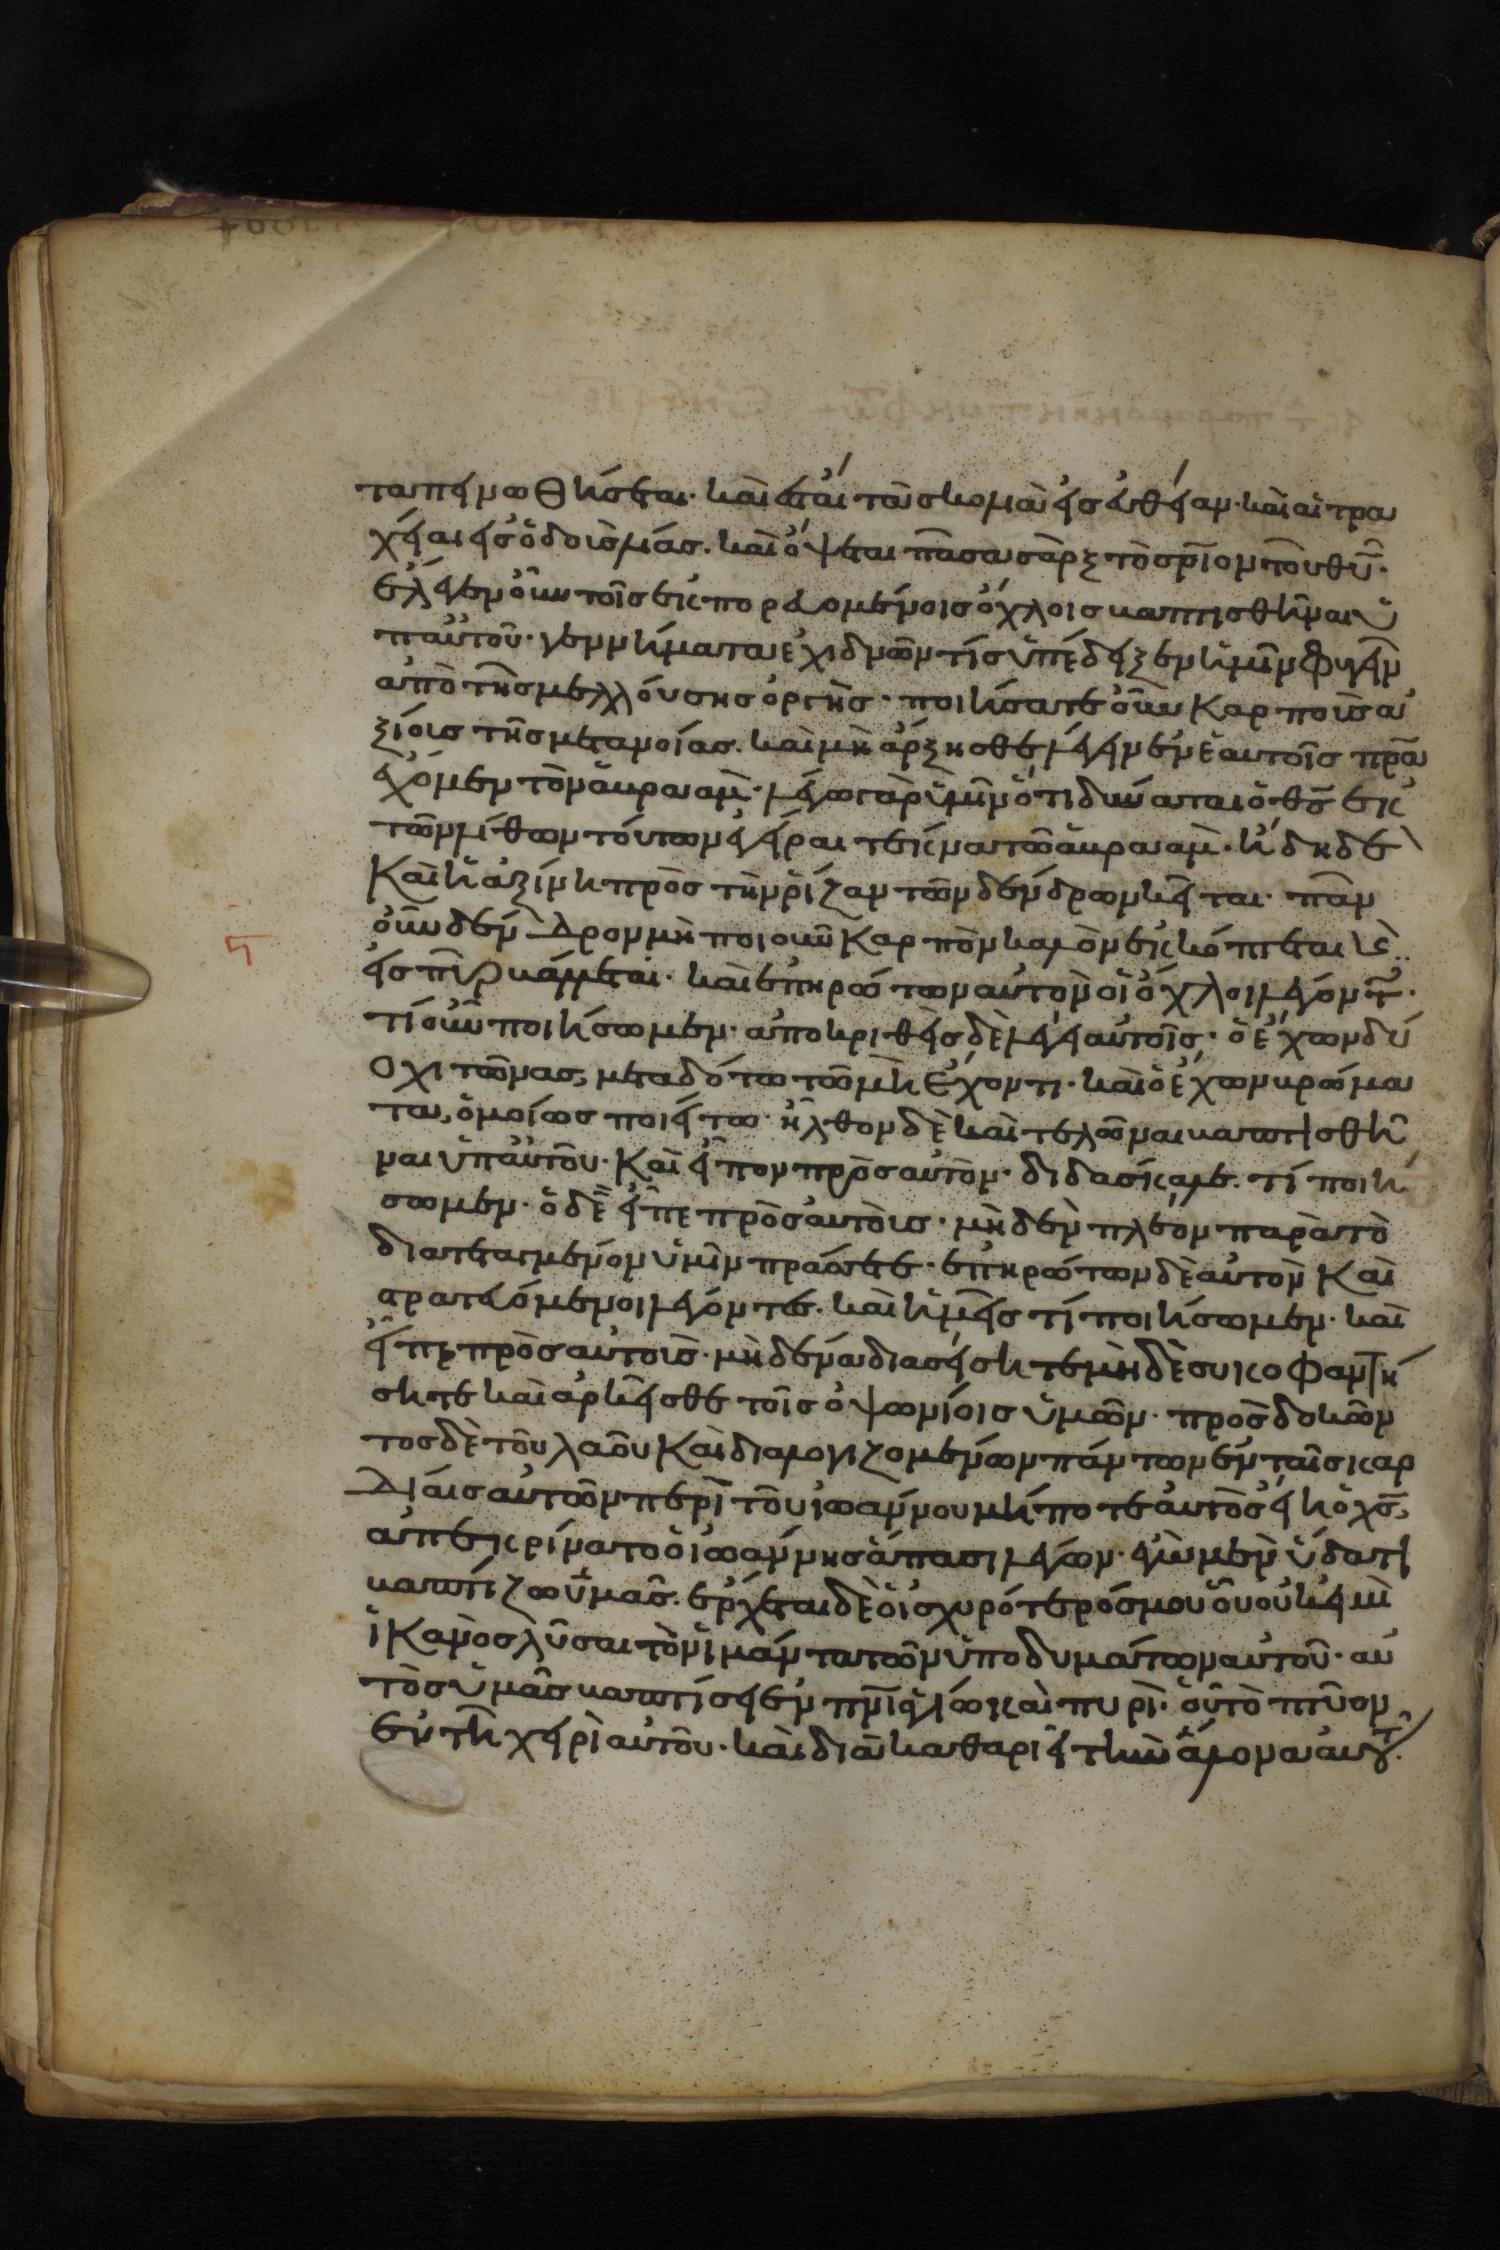 ταπεινωθήσεται· καὶ ἔσται τὰ σκολιὰ εἰς εὐθείαν· καὶ αἱ τρα
χείαι εἰς ὁδοὺς λείας. καὶ ὄψεται πᾶσα σὰρξ τὸ σρ̅ιον τοῦ θυ̅·
ἔλεγεν οὖν τοῖς ἐκπορευομένοις ὄχλοις βαπτισθῆναι ὑ
π αὐτοῦ· γεννήματα ἐχιδνῶν τίς ὑπέδειξεν ἡμῖν φυγεῖν
ἀπὸ τῆς μελλούσης ὀργῆς· ποιήσατε οὖν καρποὺς ἀ
ξίοις τῆς μετανοίας. καὶ μὴ ἄρξησθε λέγειν ἐν ἑαυτοῖς πρ̅α
ἔχομεν τὸν ἀβραάμ· λέγω γὰρ ὑμῖν ὅτι δύναται ὁ θς̅ ἐκ
τῶν λίθων τούτων ἐγείραι τέκνα τῶ ἀβραάμ· ἤδη δὲ
καὶ ἡ ἀξίνη πρὸς τὴν ῥίζαν τῶν δένδρων κεῖται· πᾶν
οὖν δένδρον μὴ ποιοῦν καρπὸν καλὸν ἐκκόπτεται κὲ
εἰς πῦρ βάλλεται· καὶ ἐπηρώτων αὐτὸν οἱ ὄχλοι λέγοντ·
τί οὖν ποιήσωμεν· ἀποκριθεὶς δὲ λέγει αὐτοῖς· ὁ ἔχων δύ
ο χιτῶνας, μεταδότω τῶ μὴ ἔχοντι· καὶ ὁ ἔχων βρώμα
τα, ὁμοίως ποιείτω· ἦλθον δὲ καὶ τελῶναι βαπτισθῆ
ναι ὑπ αὐτοῦ· καὶ εἶπον πρὸς αὐτὸν· διδάσκαλε. τί ποιή
σωμεν· ὁ δὲ εἶπε πρὸς αὐτοὺς· μηδὲν πλέον παρὰ τὸ
διατεταγμένον ὑμῖν πράσσετε· ἐπηρώτων δὲ αὐτὸν καὶ
στρατευόμενοι λέγοντες. καὶ ἡμεῖς τί ποιήσωμεν· καὶ
εἶπε πρὸς αὐτοὺς· μηδένα διασείσητε μὴδὲ συκοφαντή
σητε καὶ ἀρκεῖσθε τοῖς ὀψωνίοις ὑμῶν· προσδοκῶν
τος δὲ τοῦ λαοῦ καὶ διαλογιζομένων πάντων ἐν ταῖς καρ
δίαις αὐτῶν περὶ τοῦ ἰωάννου μήποτε αὐτὸς εἴη ὁ χς̅,
ἀπεκρίνατο ὁ ἰωάννης ἅπασι λέγων· ἐγὼ μὲν ὕδατι
βαπτίζω ὑμᾶς. ἔρχεται δὲ ὁ ἰσχυρότερός μου οὗ οὐκ εἰμὶ
ἱκανὸς λῦσαι τὸν ἱμάντα τῶν ὑποδυμάτων αὐτοῦ· αὐ
τὸς ὑμᾶς βαπτίσει ἐν πν̅ι ἁγίω καὶ πυρί· οὗ τὸ πτύον
ἐν τῇ χειρὶ αὐτοῦ· καὶ διακαθαριεῖ τὴν ἅλωνα αὐτ̅.